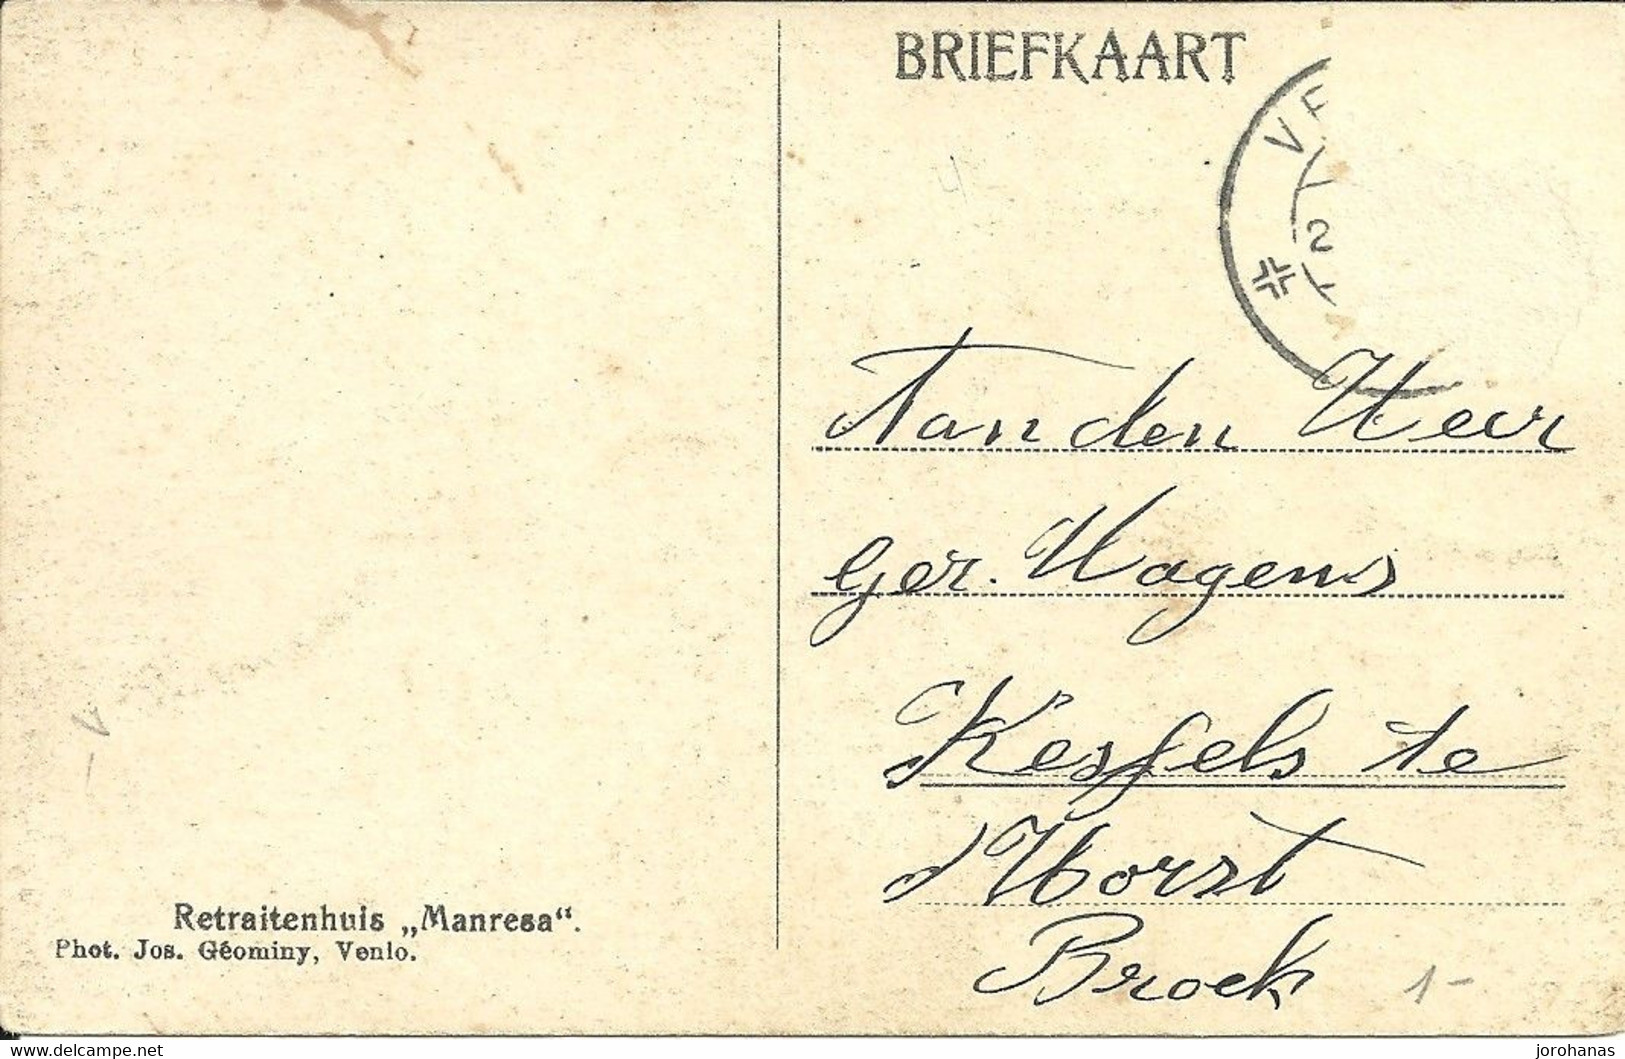 BRIEFKAART
VE
2
4
Aan den Heer
Ger. Hagens
Kessels te
Horst
Broek
1-
Retraitenhuis „Manresa“.
Phot. Jos. Géominy, Venlo.
www.delcampe.net
jorohanas